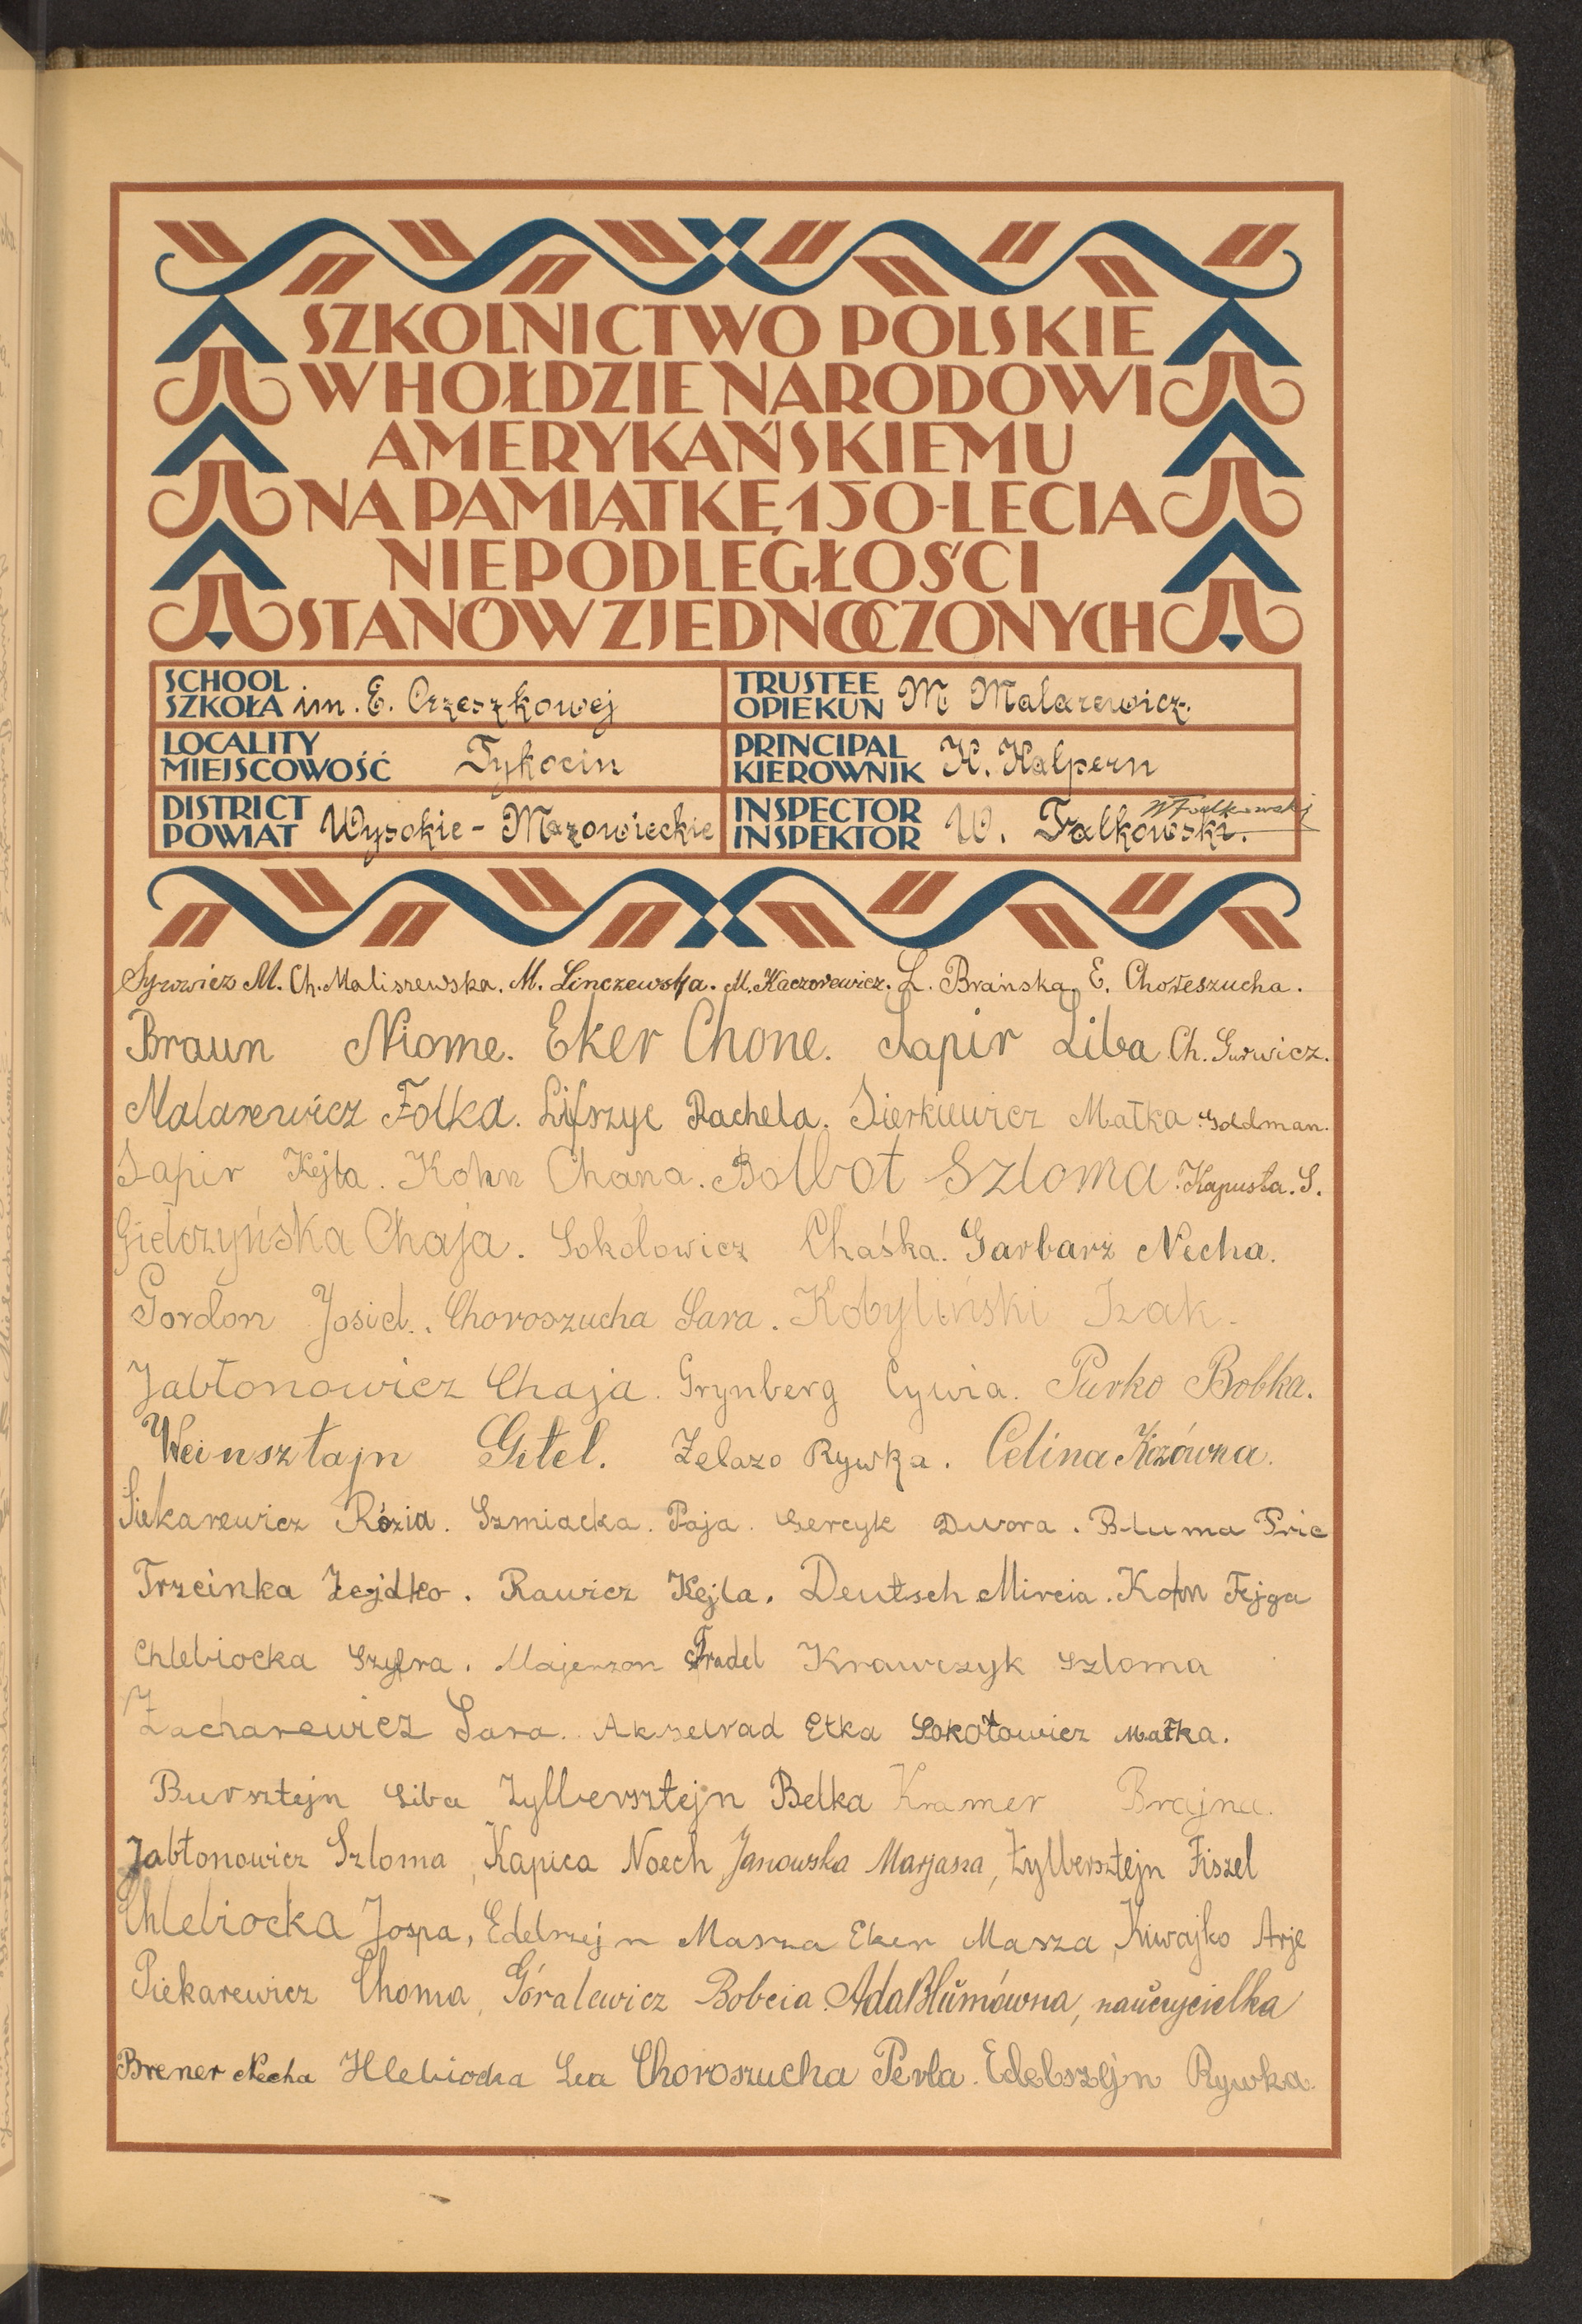 SZKOLNICTWO POLSKIE
W HOŁDZIE NARODOWI
AMERYKAŃSKIEMU
NA PAMIĄTKĘ 150-LECIA
NIEPODLEGŁOŚCI
STANÓW ZJEDNOCZONYCH
SCHOOL
SZKOŁA im. E. Orzeszkowej
TRUSTEE
OPIEKUN M Malarewicz.
LOCALITY
MIEJSCOWOŚĆ Tykocin
PRINCIPAL
KIEROWNIK H. Halpern
DISTRICT
POWIAT Wysokie-Mazowieckie
INSPECTOR
INSPEKTOR W. Falkowski. WFalkowski
M. Ch. Maliszewska. M. Linczewska. M. Kaczorewicz. L. Brańska. E. Choreszucha.
Braun Niome. Eker Chone. Sapir Liba Ch. Gurwicz.
Malarewicz Folka. Lifszyc Rachela. Sierkiewicz Małka Goldman.
Sapir Kejla. Kohn Chana. Bolbot Szloma. Kapusta. S.
Giełczyńska Chaja. Sokołowicz Chaśka. Garbarz Necha.
Gordon Josiel. Choroszucha Sara. Kobyliński Izak.
Jabłonowicz Chaja. Grynberg Cywia. Purko Bobka.
Weinsztajn Gitel. Żelazo Rywka. Celina Kozówna.
Siekarewicz Rózia. Szmiacka. Paja. Sercyk Dwora. Bluma Fric
Trzcinka Zejdko. Rawicz Kejla. Deutsch Mircia. Kohn Fejga
Chlebiocka Szyfra. Majerzon Fradel Krawczyk Szloma
Zacharewicz Sara. Akselrad Etka Sokołowicz Małka.
Bursztejn Liba Zylbersztejn Belka Kramer Brajna.
Jabłonowicz Szloma, Kapica Noech Janowska Marjasza, Żylbersztejn Fiszel
Chlebiocka Jospa, Edelszejn Masza Eker Masza, Kiwajko Arje
Piekarewicz Choma, Góralewicz Bobcia. Ada Blumówna, nauczycielka
Brener Necha Hlebiocka Lea Choroszucha Perla. Edelszejn Rywka.